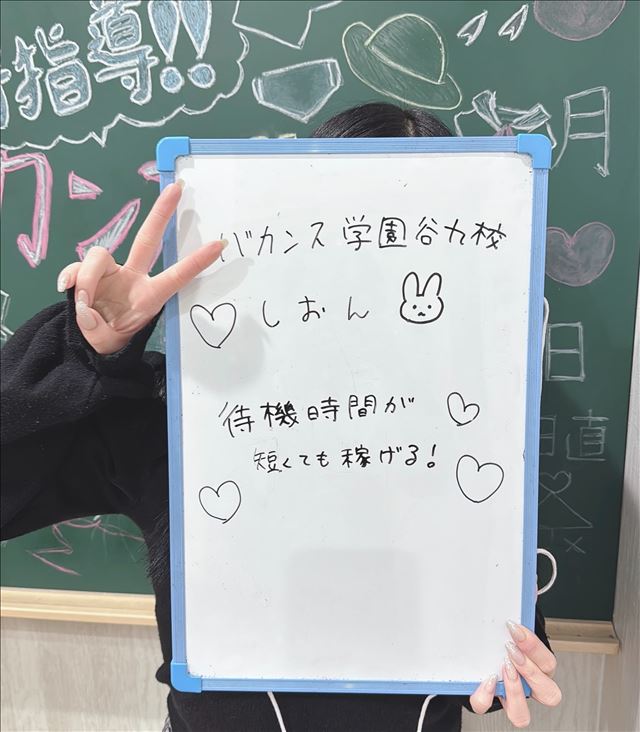 指導!!
カン
月
日
日直
バカンス学園谷九校
しおん
待機時間が
短くても稼げる!